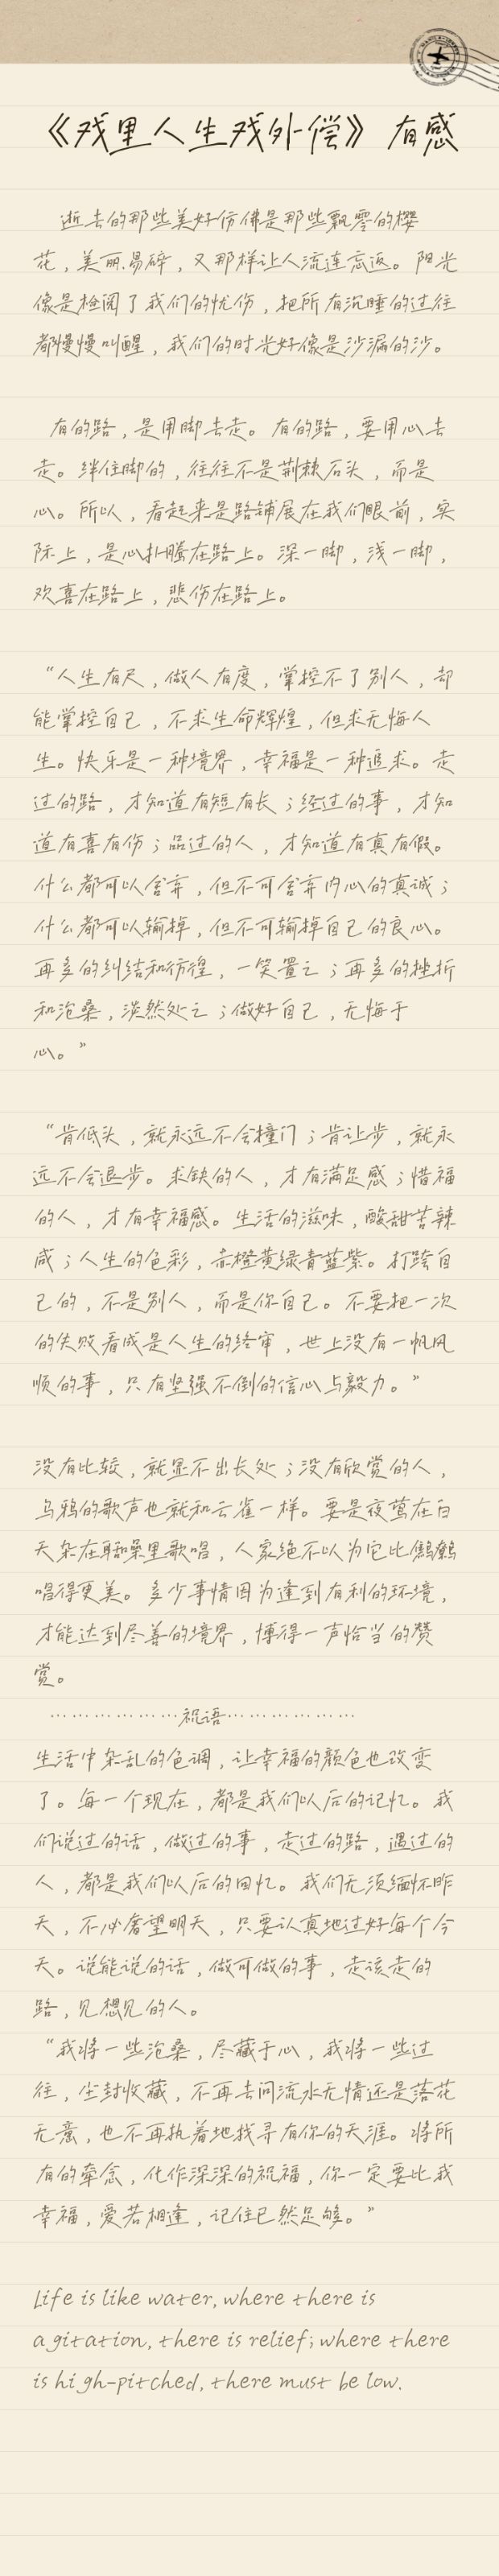 《戏里人生戏外偿》 有感
逝去的那些美好仿佛是那些飘零的樱
花，美丽易碎，又那样让人流连忘返。阳光
像是检阅了我们的忧伤，把所有沉睡的过往
都慢慢叫醒，我们的时光好像是沙漏的沙。
有的路，是用脚去走。有的路，要用心去
走。绊住脚的，往往不是荆棘石头，而是
心。所以，看起来是路铺展在我们眼前，实
际上，是心扑腾在路上。深一脚，浅一脚，
欢喜在路上，悲伤在路上。
“人生有尺，做人有度，掌控不了别人，却
能掌控自己，不求生命辉煌，但求无悔人
生。快乐是一种境界，幸福是一种追求。走
过的路，才知道有短有长；经过的事，才知
道有喜有伤；品过的人，才知道有真有假。
什么都可以舍弃，但不可舍弃内心的真诚；
什么都可以输掉，但不可输掉自己的良心。
再多的纠结和彷徨，一笑置之；再多的挫折
和沧桑，淡然处之；做好自己，无悔于
心。”
“肯低头，就永远不会撞门；肯让步，就永
远不会退步。求缺的人，才有满足感；惜福
的人，才有幸福感。生活的滋味，酸甜苦辣
咸；人生的色彩，赤橙黄绿青蓝紫。打跨自
己的，不是别人，而是你自己。不要把一次
的失败看成是人生的终审，世上没有一帆风
顺的事，只有坚强不倒的信心与毅力。”
没有比较，就显不出长处；没有欣赏的人，
乌鸦的歌声也就和云雀一样。要是夜莺在白
天杂在聒噪里歌唱，人家绝不以为它比鹪鹩
唱得更美。多少事情因为逢到有利的环境，
才能达到尽善的境界，博得一声恰当的赞
赏。
………………祝语………………
生活中杂乱的色调，让幸福的颜色也改变
了。每一个现在，都是我们以后的记忆。我
们说过的话，做过的事，走过的路，遇过的
人，都是我们以后的回忆。我们无须缅怀昨
天，不必奢望明天，只要认真地过好每个今
天。说能说的话，做可做的事，走该走的
路，见想见的人。
“我将一些沧桑，尽藏于心，我将一些过
往，尘封收藏，不再去问流水无情还是落花
无意，也不再执着地找寻有你的天涯。将所
有的牵念，化作深深的祝福，你一定要比我
幸福，爱若相逢，记住已然足够。”
Life is like water, where there is
agitation, there is relief; where there
is high-pitched, there must be low.